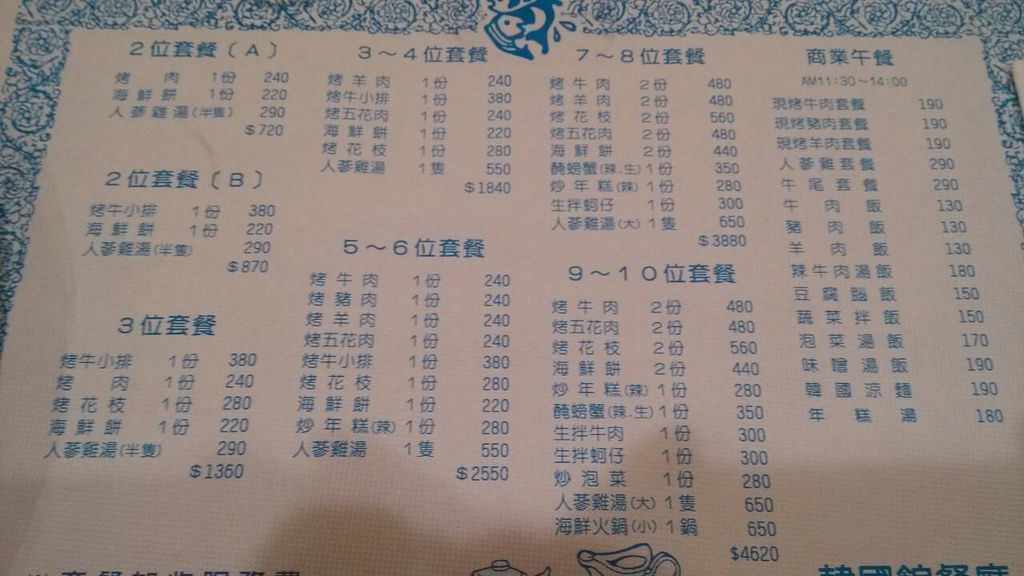 2位套餐〔A〕
烤肉 1份 240
海鮮餅 1份 220
人蔘雞湯(半隻) 290
$720
2位套餐〔B〕
烤牛小排 1份 380
海鮮餅 1份 220
人蔘雞湯(半隻) 290
$870
3位套餐
烤牛小排 1份 380
烤肉 1份 240
烤花枝 1份 280
海鮮餅 1份 220
人蔘雞湯(半隻) 290
$1360
3～4位套餐
烤羊肉 1份 240
烤牛小排 1份 380
烤五花肉 1份 240
海鮮餅 1份 220
烤花枝 1份 280
人蔘雞湯 1隻 550
$1840
5～6位套餐
烤牛肉 1份 240
烤豬肉 1份 240
烤羊肉 1份 240
烤五花肉 1份 240
烤牛小排 1份 380
烤花枝 1份 280
海鮮餅 1份 220
炒年糕(辣) 1份 280
人蔘雞湯 1隻 550
$2550
7～8位套餐
烤牛肉 2份 480
烤羊肉 2份 480
烤花枝 2份 560
烤五花肉 2份 480
海鮮餅 2份 440
醃螃蟹(辣.生) 1份 350
炒年糕(辣) 1份 280
生拌蚵仔 1份 300
人蔘雞湯(大) 1隻 650
$3880
9～10位套餐
烤牛肉 2份 480
烤五花肉 2份 480
烤花枝 2份 560
海鮮餅 2份 440
炒年糕(辣) 1份 280
醃螃蟹(辣.生) 1份 350
生拌牛肉 1份 300
生拌蚵仔 1份 300
炒泡菜 1份 280
人蔘雞湯(大) 1隻 650
海鮮火鍋(小) 1鍋 650
$4620
商業午餐
AM11:30～14:00
現烤牛肉套餐 190
現烤豬肉套餐 190
現烤羊肉套餐 190
人蔘雞套餐 290
牛尾套餐 290
牛肉飯 130
豬肉飯 130
羊肉飯 130
辣牛肉湯飯 180
豆腐腦飯 150
蔬菜拌飯 150
泡菜湯飯 170
味噌湯飯 190
韓國涼麵 190
年糕湯 180
※套餐加收服務費
韓國館餐廳